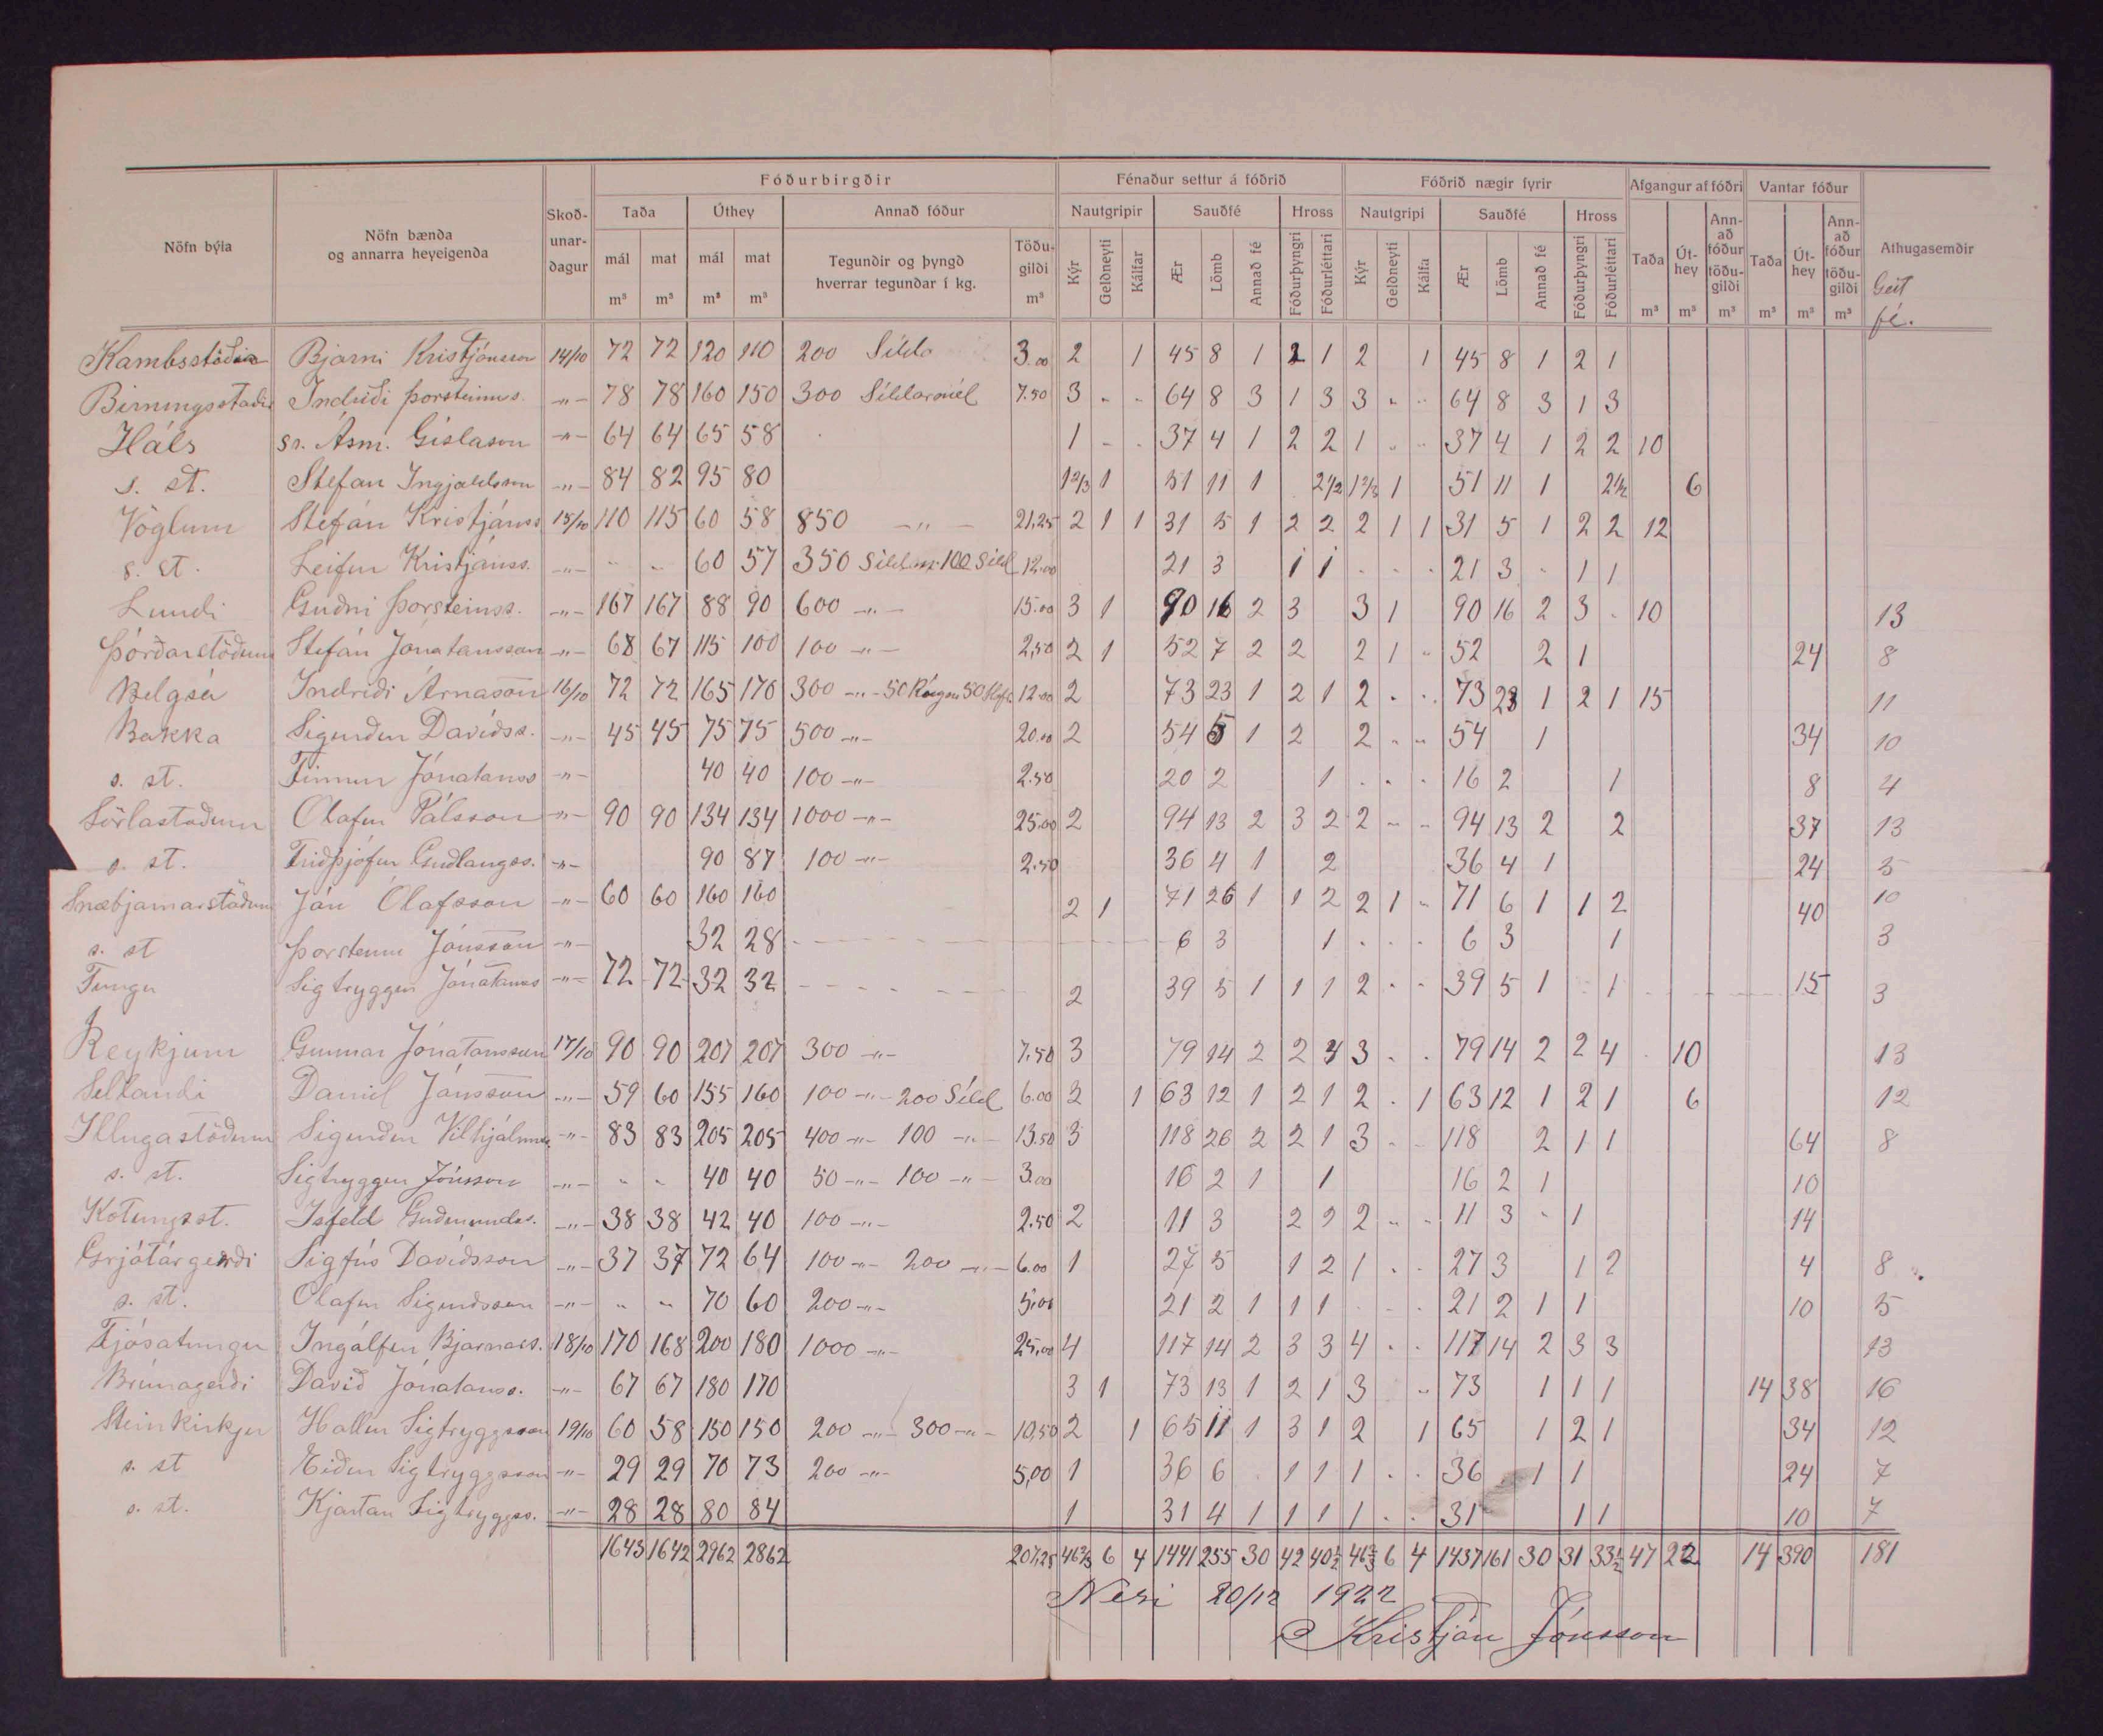 Fóðurbirgðir Fénaður settur á fóðrið Fóðrið nægir fyrir Afgangur af fóðri Vantar fóður
Nöfn býla Nöfn bænda og annarra heyeigenda Skoð-unar-dagur Taða Úthey Annað fóður Nautgripir Sauðfé Hross Nautgripi Sauðfé Hross Taða Út-hey Ann-að fóður töðu-gildi Taða Út-hey Ann-að fóður töðu-gildi Athugasemdir
mál mat mál mat Tegundir og þyngd hverrar tegundar í kg. Töðu-gildi Kýr Geldneyti Kálfar Ær Lömb Annað fé Fóðurþyngri Fóðurléttari Kýr Geldneyti Kálfa Ær Lömb Annað fé Fóðurþyngri Fóðurléttari Geit fé.
m³ m³ m³ m³ m³ m³ m³ m³ m³ m³ m³
Kambsstöðum Bjarni Kristjánsson 14/10 72 72 120 110 200 Síld 3.00 2 1 45 8 1 2 1 2 1 45 8 1 2 1
Birningsstaði Indriði Þorsteinss. -"- 78 78 160 150 300 Síldarmél 7.50 3 - - 64 8 3 1 3 3 - - 64 8 3 1 3
Háls sr. Ásm. Gíslason -"- 64 64 65 58 1 - - 37 4 1 2 2 1 - - 37 4 1 2 2 10
s. st. Stefan Ingjaldsson -"- 84 82 95 80 1 2/3 1 51 11 1 2 1/2 1 2/3 1 51 11 1 2 1/2 6
Vöglum Stefán Kristjánss 15/10 110 115 60 58 850 -"- 21,25 2 1 1 31 5 1 2 2 2 1 1 31 5 1 2 2 12
s. st. Leifur Kristjánss. -"- - - 60 57 350 Síldarm. 100 Síld 12.00 21 3 1 1 - - - 21 3 - 1 1
Lundi Guðni Þorsteinss. -"- 167 167 88 90 600 -"- 15.00 3 1 90 16 2 3 3 1 90 16 2 3 - 10 13
Þórðarstöðum Stefán Jónatansson -"- 68 67 115 100 100 -"- 2,50 2 1 52 7 2 2 2 1 - 52 2 1 24 8
Belgsá Indriði Árnason 16/10 72 72 165 170 300 -"- 50 Rúgm 50 12.00 2 73 23 1 2 1 2 - - 73 23 1 2 1 15 11
Bakka Sigurður Davíðss. -"- 45 45 75 75 500 -"- 20.00 2 54 5 1 2 2 - - 54 1 34 10
s. st. Finnur Jónatanss -"- 40 40 100 -"- 2.50 20 2 1 - - - 16 2 1 8 4
Sörlastöðum Ólafur Pálsson -"- 90 90 134 134 1000 -"- 25.00 2 94 13 2 3 2 2 - - 94 13 2 2 37 13
s. st. Friðþjófur Guðlaugss. -"- 90 87 100 -"- 2.50 36 4 1 2 36 4 1 24 5
Snæbjarnarstöðum Jón Ólafsson -"- 60 60 160 160 2 1 71 26 1 1 2 2 1 - 71 6 1 1 2 40 10
s. st Þorsteinn Jónsson -"- 32 28 6 3 1 - - - 6 3 1 3
Tungu Sigtryggur Jónatanss -"- 72 72 32 32 2 39 5 1 1 1 2 - - 39 5 1 - 1 15 3
Reykjum Gunnar Jónatansson 17/10 90 90 207 207 300 -"- 7.50 3 79 14 2 2 4 3 - - 79 14 2 2 4 10 13
Sellandi Daníel Jónsson -"- 59 60 155 160 100 -"- 200 Síld 6.00 2 1 63 12 1 2 1 2 - 1 63 12 1 2 1 6 12
Illugastöðum Sigurður Vilhjálmss. -"- 83 83 205 205 400 -"- 100 -"- 13.50 3 118 26 2 2 1 3 - - 118 2 1 1 64 8
s. st. Sigtryggur Jónsson -"- - - 40 40 50 -"- 100 -"- 3.00 16 2 1 1 16 2 1 10
Kotungsst. Ísfeld Guðmundss. -"- 38 38 42 40 100 -"- 2.50 2 11 3 2 2 2 - - 11 3 - 1 14
Grjótárgerði Sigfús Davíðsson -"- 37 37 72 64 100 -"- 200 -"- 6.00 1 27 5 1 2 1 - - 27 3 1 2 4 8
s. st. Ólafur Sigurðsson -"- - - 70 60 200 -"- 5,00 21 2 1 1 1 - - - 21 2 1 1 10 5
Fjósatungu Ingólfur Bjarnars. 18/10 170 168 200 180 1000 -"- 25,00 4 117 14 2 3 3 4 - - 117 14 2 3 3 13
Brúnagerði Davíð Jónatanss. -"- 67 67 180 170 3 1 73 13 1 2 1 3 - 73 1 1 1 14 38 16
Steinkirkju Hallur Sigtryggsson 19/10 60 58 150 150 200 -"- 300 -"- 10,50 2 1 65 11 1 3 1 2 1 65 1 2 1 34 12
s. st Eiður Sigtryggsson -"- 29 29 70 73 200 -"- 5,00 1 36 6 1 1 1 - - 36 1 1 24 7
s. st. Kjartan Sigtryggss. -"- 28 28 80 84 1 31 4 1 1 1 1 - - 31 1 1 10 7
1643 1642 2962 2862 207,25 46 2/3 6 4 1441 255 30 42 40 1/2 46 2/3 6 4 1437 161 30 31 33 1/2 47 22 14 390 181
Nesi 20/12 1922
Kristján Jónsson